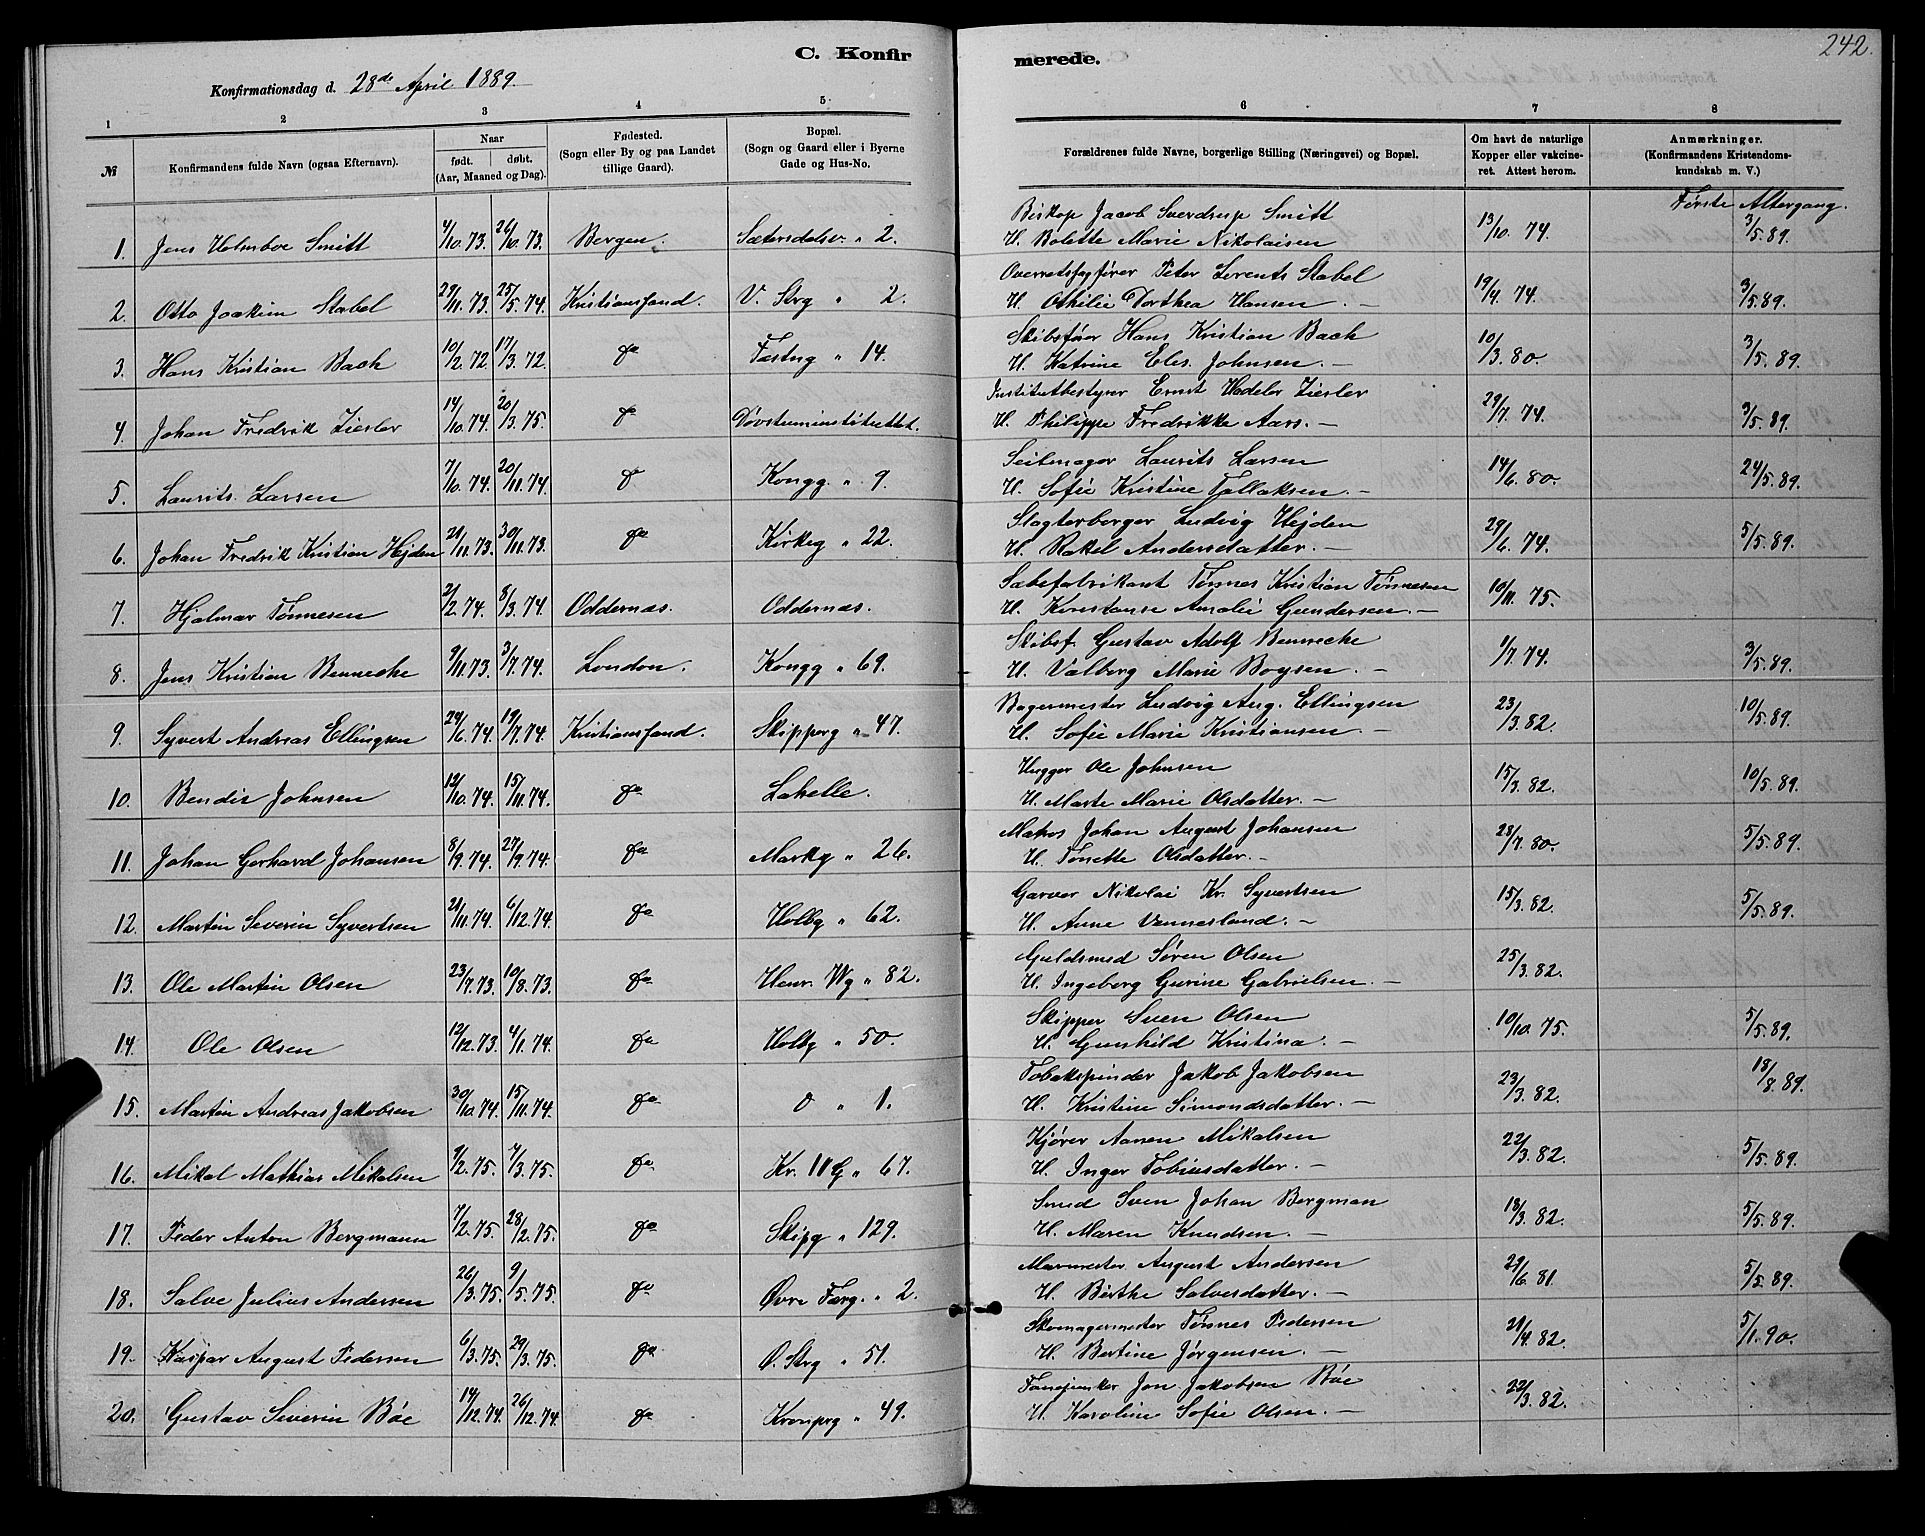 242.
C. Konfirmerede.
Konfirmationsdag d. 28de April 1889.
1 2 3 4 5 6 7 8
№ Konfirmandens fulde Navn (ogsaa Efternavn). Naar født. døbt. (Aar, Maaned og Dag). Fødested. (Sogn eller By og paa Landet tillige Gaard). Bopæl. (Sogn og Gaard eller i Byerne Gade og Hus-No. Forældrenes fulde Navne, borgerlige Stilling (Næringsvei) og Bopæl. Om havt de naturlige Kopper eller vakcineret. Attest herom. Anmærkninger. (Konfirmandens Kristendomskundskab m. V.)
Første Altergang.
Biskop Jacob Sverdrup Smitt
1. Jens Holmboe Smitt 4/10.73. 26/10.73. Bergen. Sætersdalsv. " 2. H. Bolette Marie Nikolaisen 13/10.74. 3/5.89.
Overretssagfører Peter Lorents Stabel
2. Otto Joakim Stabel 29/11.73. 25/5.74. Kristianssand. V. Strg " 2. H. Othilie Dorthea Hansen. — 19/4.74. 3/5.89.
Skibsfører Hans Kristian Bach
3. Hans Kristian Bach 10/2.72. 17/3.72. do Fæstng " 14. H. Katrine Elis. Johnsen. — 10/3.80. 3/5.89.
Institutbestyrer Ernst Hedeler Ziesler
4. Johan Fredrik Ziesler 14/10.74. 20/3.75. do Døvstuminstituttet. H. Philippe Fredrikke Aars. — 29/7.74. 3/5.89.
Seilmager Laurits Larsen
5. Laurits Larsen 7/10.74. 20/11.74. do Kongg. " 9. H. Sofie Kristine Tallaksen. — 14/6.80. 24/5.89.
Slagterborger Ludvig Hejden
6. Johan Fredrik Kristian Hejden 21/11.73. 30/11.73. do Kirkeg " 22. H. Rakel Andersdatter. — 29/6.74. 5/5.89.
Sæbefabrikant Tønnes Kristian Tønnesen
7. Hjalmar Tønnesen 2/2.74. 8/3.74. Oddernæs. Oddernæs. H. Konstanse Amalie Gundersen. — 10/11.75.
Skibsf. Gustav Adolf Bennecke
8. Jens Kristian Bennecke 9/11.73. 3/7.74. London. Kongg " 69. H. Valborg Marie Boysen. — 1/7.74. 3/5.89.
Bagermester Ludvig Aug. Ellingsen
9. Syvert Andreas Ellingsen 24/6.74. 19/7.74. Kristianssand. Skipperg " 47. H. Sofie Marie Kristiansen. — 23/3.82. 10/5.89.
Hugger Ole Johnsen
10. Bendix Johnsen 12/10.74. 15/11.74. do Lahelle. H. Marte Marie Olsdatter. — 15/3.82. 10/5.89.
Matros Johan August Johansen
11. Johan Gerhard Johansen 8/9.74. 27/9.74. do Markg " 26. H. Tonette Olsdatter. — 28/7.80. 5/5.89.
Garver Nikolai Kr. Syvertsen
12. Martin Severin Syvertsen 21/11.74. 6/12.74. do Holbg " 62. H. Anne Vennesland. — 15/3.82. 5/5.89.
Guldsmed Søren Olsen
13. Ole Martin Olsen 23/7.73. 10/8.73. do Henr. Wg " 82. H. Ingeborg Gurine Gabrielsen. — 25/3.82.
Skipper Sven Olsen
14. Ole Olsen 12/12.73. 4/1.74. do Holbg " 50. H. Gunhild Kristina. — 10/10.75. 5/5.89.
Tobakspinder Jakob Jakobsen
15. Martin Andreas Jakobsen 30/10.74. 15/11.74. do 0 " 1. H. Kristine Simondsdatter. — 23/3.82. 18/8.89.
Kjører Aanen Mikalsen
16. Mikal Mathias Mikalsen 9/2.75. 7/3.75. do Kr. IV G " 67. H. Inger Tobiasdatter. — 22/3.82. 5/5.89.
Smed Sven Johan Bergman
17. Peder Anton Bergmann 7/2.75. 28/2.75. do Skipg " 129. H. Maren Knudsen. — 18/3.82. 5/5.89.
Murmester August Andersen
18. Salve Julius Andersen 26/3.75. 9/5.75. do Øvre Færg. " 2. H. Birthe Salvesdatter. — 29/6.81. 5/5.89.
Skomagermester Tønnes Pedersen
19. Kaspar August Pedersen 6/3.75. 29/3.75. do Ø. Strg " 51. H. Bertine Jørgensen. — 21/4.82. 5/1.90.
Fanejunker Jon Jakobsen Bøe
20. Gustav Severin Bøe 14/12.74. 26/12.74. do Kronprg " 49. H. Karoline Sofie Olsen. — 22/3.82.